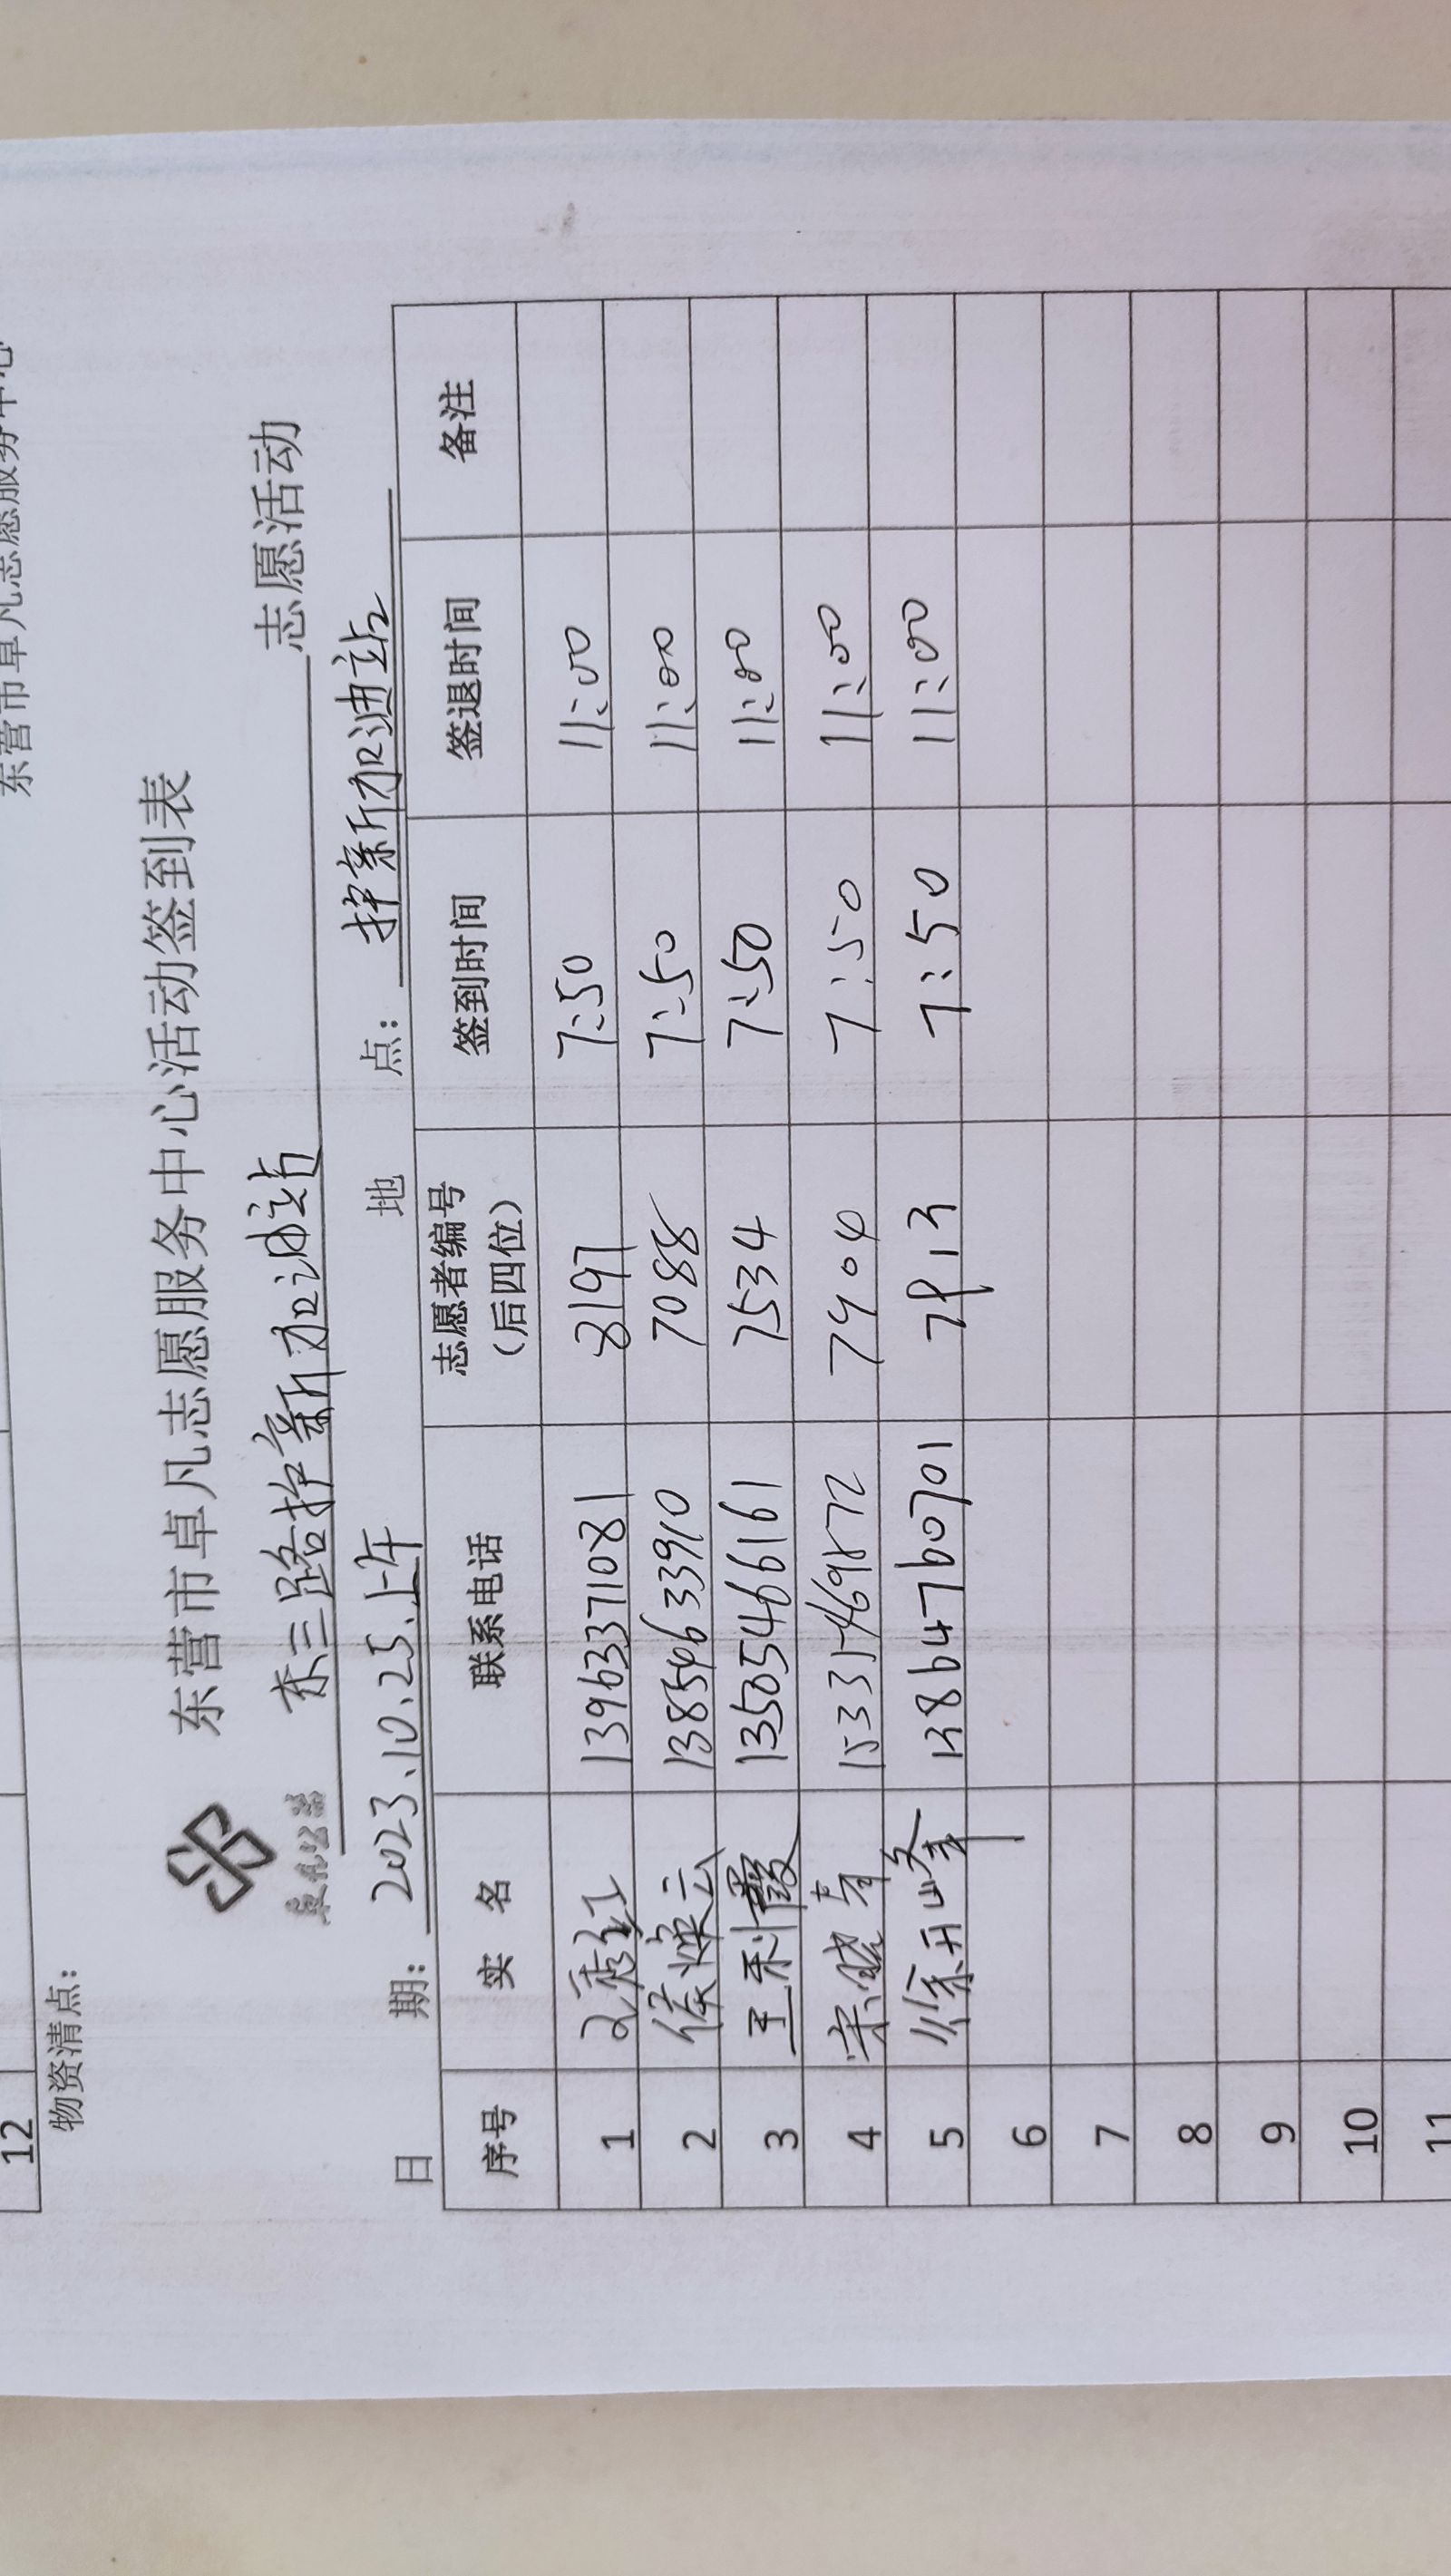 东营市卓凡志愿服务中心
12
物资清点：
卓凡公益
东营市卓凡志愿服务中心活动签到表
东三路护新加油站 志愿活动
日 期： 2023.10.25.上午 地 点： 护新加油站
序号 实 名 联系电话 志愿者编号（后四位） 签到时间 签退时间 备注
1 13963371081 8197 7:50 11:00
2 侯焕云 13854633910 7088 7:50 11:00
3 王利霞 13505466161 7534 7:50 11:00
4 宋晓 7:50 11:00
5 徐开峰 13864760701 7813 7:50 11:00
6
7
8
9
10
11